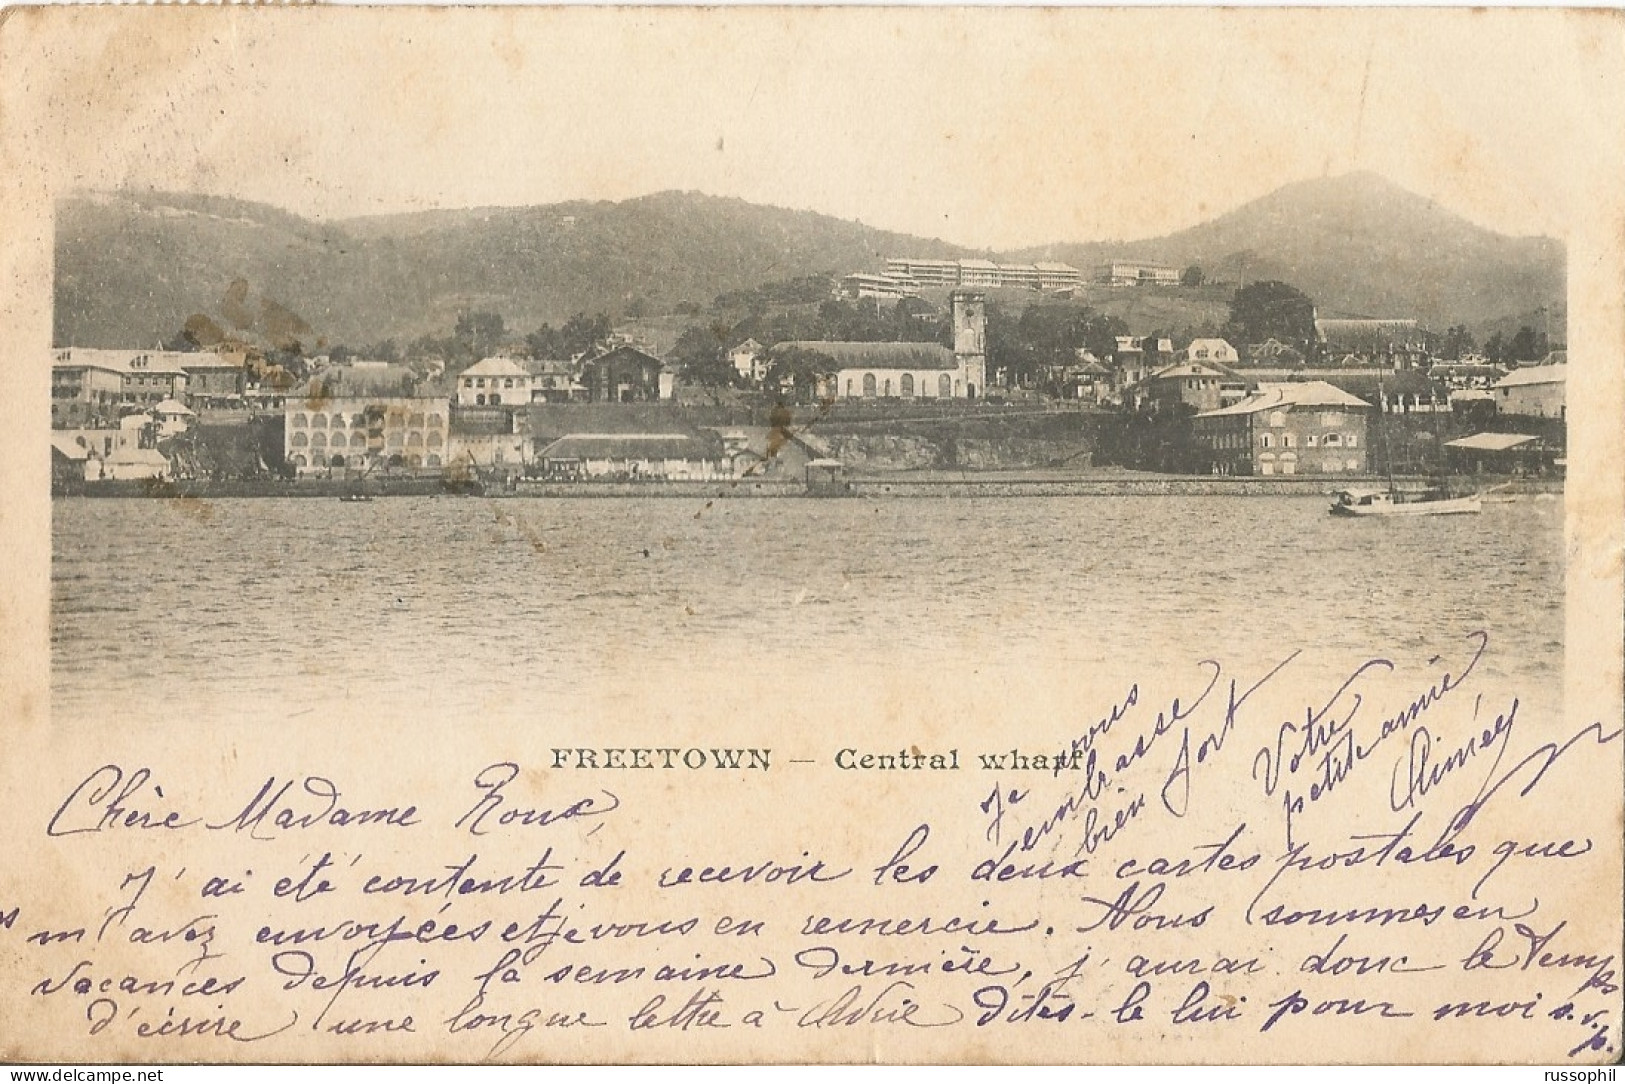 FREETOWN — Central wharf
Chère Madame Roux,
J'ai été contente de recevoir les deux cartes postales que
m'avez envoyées et je vous en remercie. Nous sommes en
vacances depuis la semaine dernière, j'aurai donc le temps
d'écrire une longue lettre à Dites-le lui pour moi s.v.p.
Je vous
embrasse
bien fort
Votre
petite amie
www.delcampe.net
russophil